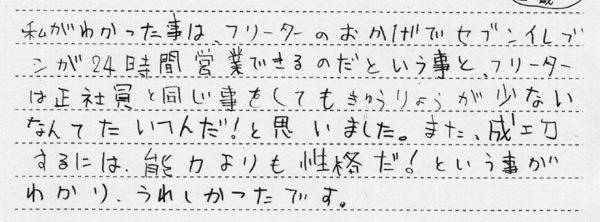 私がわかった事は、フリーターのおかげでセブンイレブ
ンが24時間営業できるのだという事と、フリーター
は正社員と同じ事をしてもきゅうりょうが少ない
なんてたいへんだ!と思いました。また、成功
するには、能力よりも性格だ!という事が
わかり、うれしかったです。